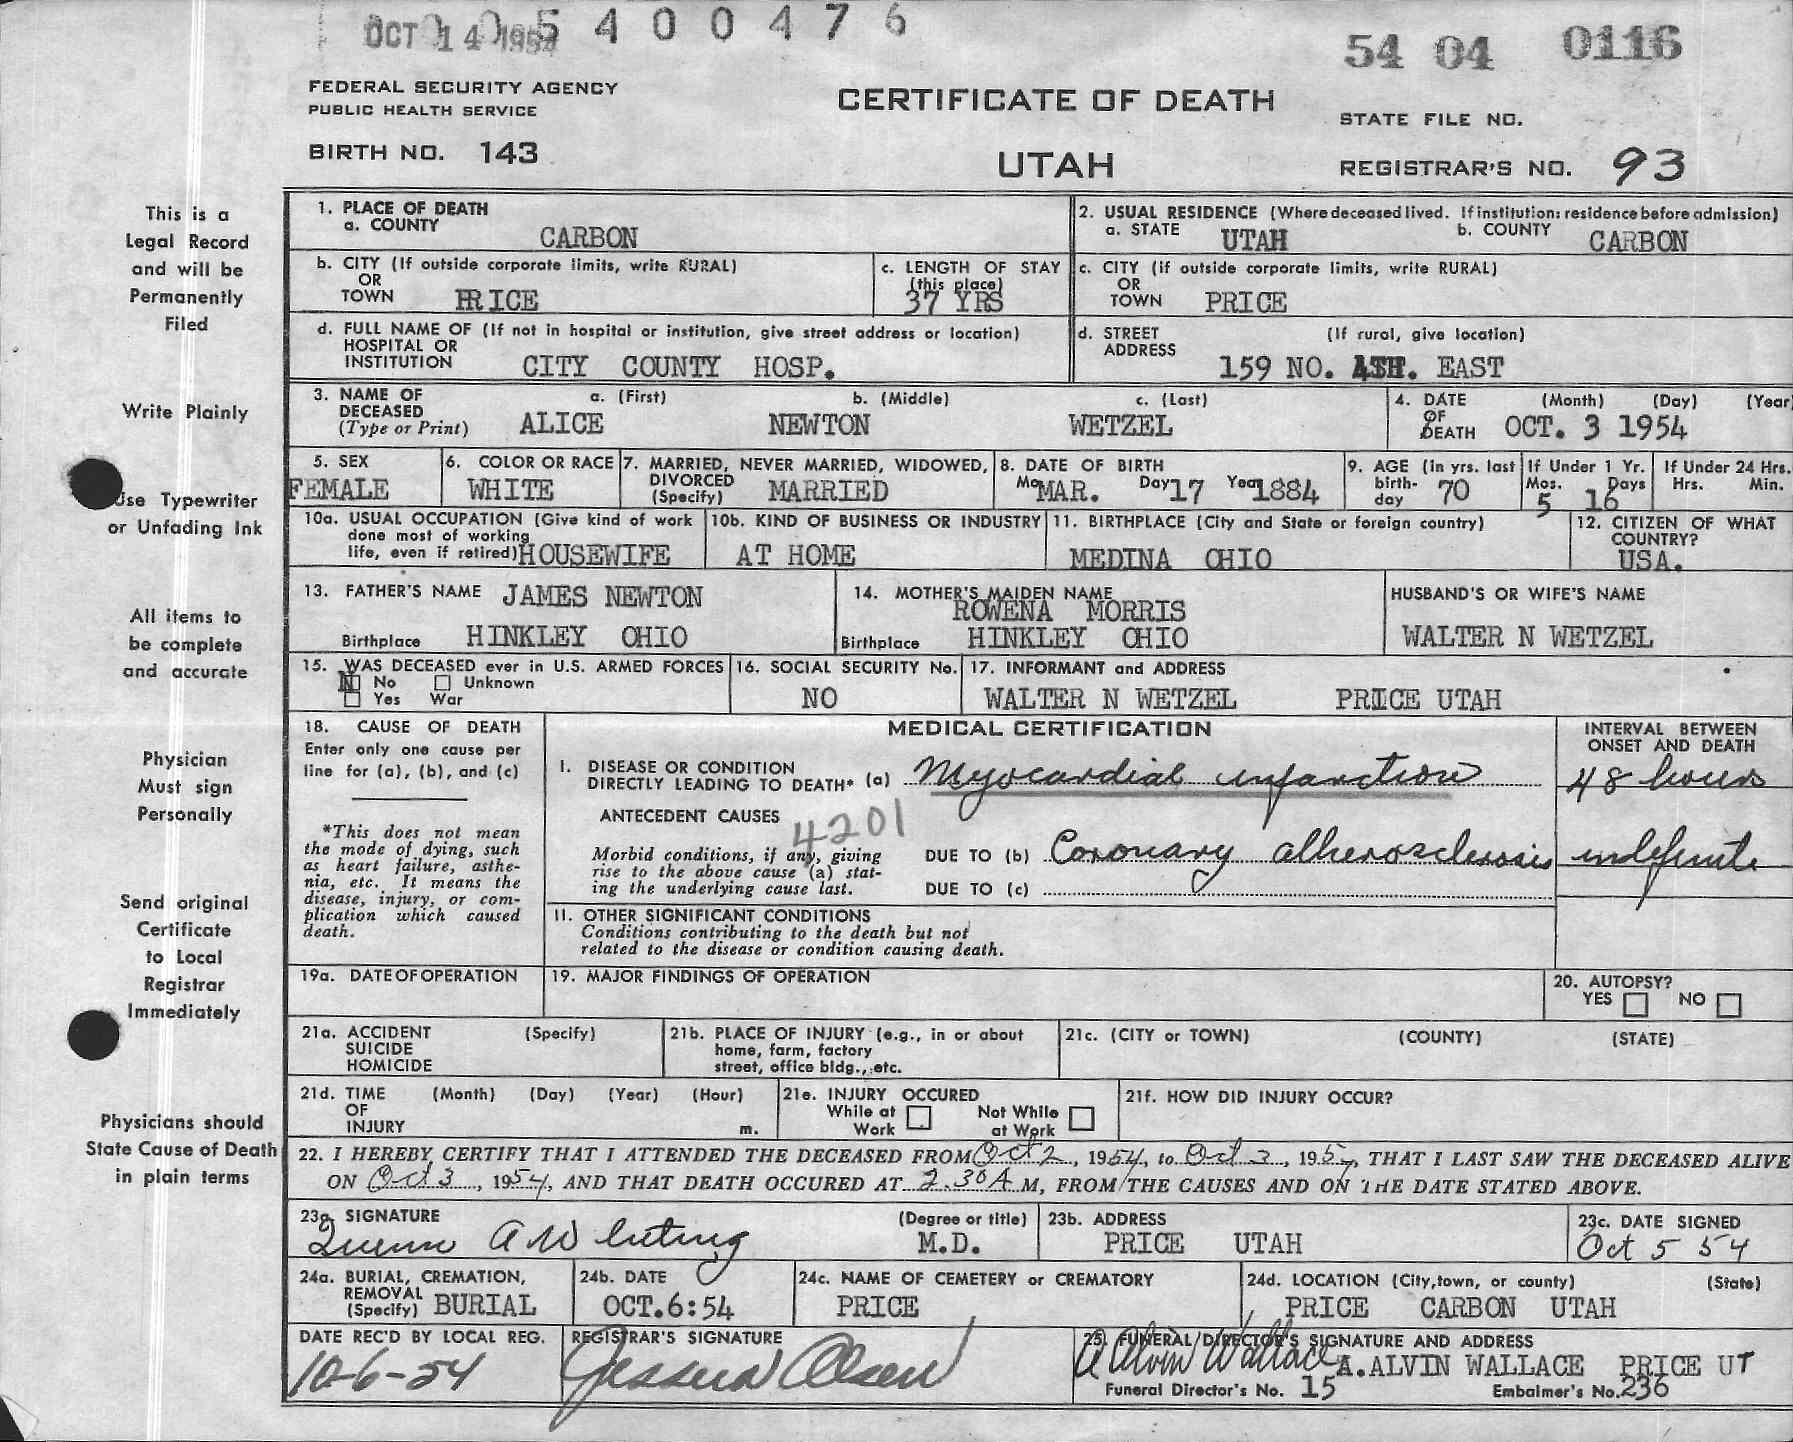 OCT 14 1954 5400476
54 04 0116
FEDERAL SECURITY AGENCY
PUBLIC HEALTH SERVICE
CERTIFICATE OF DEATH
STATE FILE NO.
BIRTH NO. 143
UTAH
REGISTRAR'S NO. 93
This is a
Legal Record
and will be
Permanently
Filed
Write Plainly
Use Typewriter
or Unfading Ink
All items to
be complete
and accurate
Physician
Must sign
Personally
Send original
Certificate
to Local
Registrar
Immediately
Physicians should
State Cause of Death
in plain terms
1. PLACE OF DEATH
a. COUNTY CARBON
2. USUAL RESIDENCE (Where deceased lived. If institution: residence before admission)
a. STATE UTAH b. COUNTY CARBON
b. CITY (If outside corporate limits, write RURAL)
OR
TOWN PRICE
c. LENGTH OF STAY
(this place)
37 YRS
c. CITY (if outside corporate limits, write RURAL)
OR
TOWN PRICE
d. FULL NAME OF (If not in hospital or institution, give street address or location)
HOSPITAL OR
INSTITUTION CITY COUNTY HOSP.
d. STREET (If rural, give location)
ADDRESS 159 NO. 4TH. EAST
3. NAME OF a. (First) b. (Middle) c. (Last)
DECEASED
(Type or Print) ALICE NEWTON WETZEL
4. DATE (Month) (Day) (Year
OF
DEATH OCT. 3 1954
5. SEX
FEMALE
6. COLOR OR RACE
WHITE
7. MARRIED, NEVER MARRIED, WIDOWED,
DIVORCED
(Specify) MARRIED
8. DATE OF BIRTH
Mo MAR. Day 17 Year 1884
9. AGE (In yrs. last
birth-
day 70
If Under 1 Yr.
Mos. Days
5 16
If Under 24 Hrs.
Hrs. Min.
10a. USUAL OCCUPATION (Give kind of work
done most of working
life, even if retired) HOUSEWIFE
10b. KIND OF BUSINESS OR INDUSTRY
AT HOME
11. BIRTHPLACE (City and State or foreign country)
MEDINA OHIO
12. CITIZEN OF WHAT
COUNTRY?
USA.
13. FATHER'S NAME JAMES NEWTON
Birthplace HINKLEY OHIO
14. MOTHER'S MAIDEN NAME
ROWENA MORRIS
Birthplace HINKLEY OHIO
HUSBAND'S OR WIFE'S NAME
WALTER N WETZEL
15. WAS DECEASED ever in U.S. ARMED FORCES
N No Unknown
Yes War
16. SOCIAL SECURITY No.
NO
17. INFORMANT and ADDRESS
WALTER N WETZEL PRICE UTAH
18. CAUSE OF DEATH
Enter only one cause per
line for (a), (b), and (c)
*This does not mean
the mode of dying, such
as heart failure, asthe-
nia, etc. It means the
disease, injury, or com-
plication which caused
death.
MEDICAL CERTIFICATION
INTERVAL BETWEEN
ONSET AND DEATH
I. DISEASE OR CONDITION
DIRECTLY LEADING TO DEATH* (a) Myocardial infarction 48 hours
ANTECEDENT CAUSES 4201
Morbid conditions, if any, giving
rise to the above cause (a) stat-
ing the underlying cause last.
DUE TO (b) Coronary atherosclerosis indefinite
DUE TO (c)
II. OTHER SIGNIFICANT CONDITIONS
Conditions contributing to the death but not
related to the disease or condition causing death.
19a. DATE OF OPERATION
19. MAJOR FINDINGS OF OPERATION
20. AUTOPSY?
YES NO
21a. ACCIDENT (Specify)
SUICIDE
HOMICIDE
21b. PLACE OF INJURY (e.g., in or about
home, farm, factory
street, office bldg., etc.
21c. (CITY or TOWN) (COUNTY) (STATE)
21d. TIME (Month) (Day) (Year) (Hour)
OF
INJURY m.
21e. INJURY OCCURED
While at Not While
Work at Work
21f. HOW DID INJURY OCCUR?
22. I HEREBY CERTIFY THAT I ATTENDED THE DECEASED FROM Oct 2, 1954, to Oct 3, 1954, THAT I LAST SAW THE DECEASED ALIVE
ON Oct 3, 1954, AND THAT DEATH OCCURED AT 2.30 A M, FROM THE CAUSES AND ON THE DATE STATED ABOVE.
23a. SIGNATURE (Degree or title)
Quinn A Whiting M.D.
23b. ADDRESS
PRICE UTAH
23c. DATE SIGNED
Oct 5 54
24a. BURIAL, CREMATION,
REMOVAL
(Specify) BURIAL
24b. DATE
OCT.6:54
24c. NAME OF CEMETERY or CREMATORY
PRICE
24d. LOCATION (City, town, or county) (State)
PRICE CARBON UTAH
DATE REC'D BY LOCAL REG.
10-6-54
REGISTRAR'S SIGNATURE
Olsen
25. FUNERAL DIRECTOR'S SIGNATURE AND ADDRESS
A Alvin Wallace A. ALVIN WALLACE PRICE UT
Funeral Director's No. 15 Embalmer's No. 236